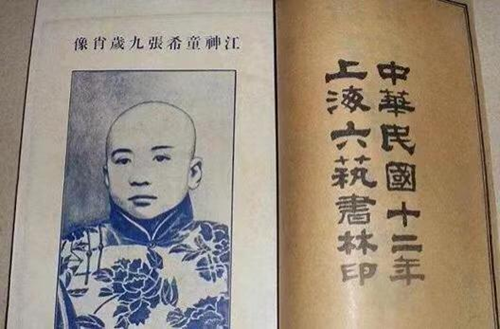 江神童希張九歲肖像
中華民國十二年
上海六蓺書林印